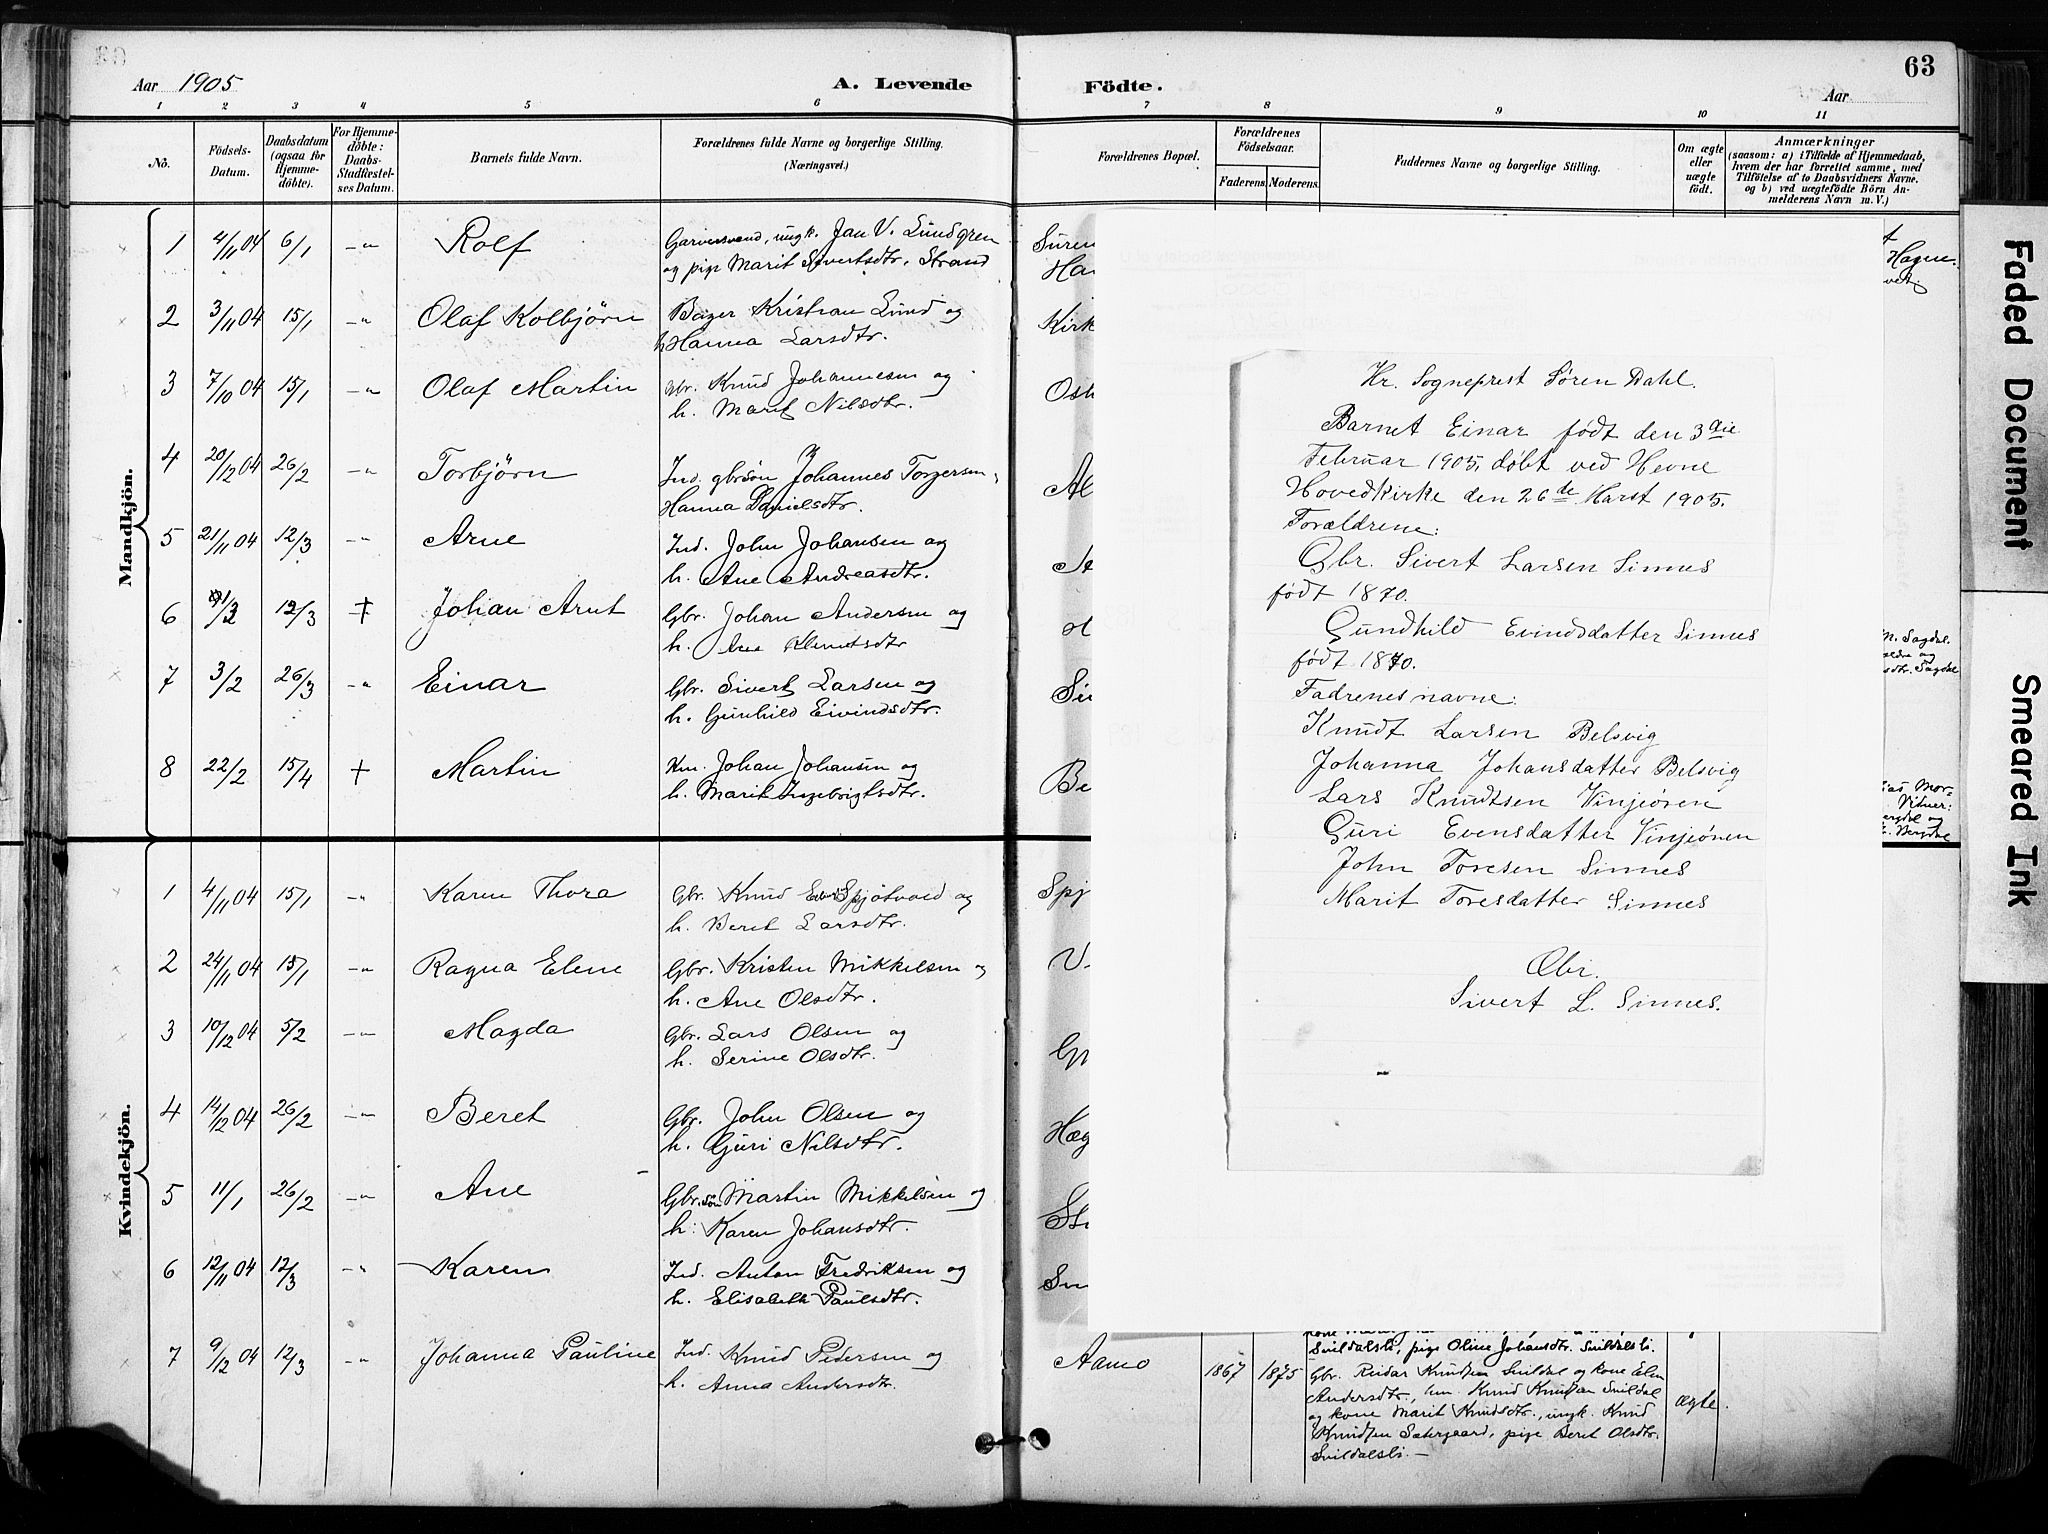 63
Aar 1905
A. Levende
Födte.
Aar
1 2 3 4 5 6 7 8 9 10 11
Nö.
Födsels-
Datum.
Daabsdatum
(ogsaa for
Hjemme-
döbte).
For Hjemme-
döbte:
Daabs-
Stadfæstel-
ses Datum.
Barnets fulde Navn.
Forældrenes fulde Navne og borgerlige Stilling.
(Næringsvei.)
Forældrenes Bopæl.
Forældrenes
Födselsaar.
Faderens. Moderens.
Faddernes Navne og borgerlige Stilling.
Om ægte
eller
uægte
födt.
Anmærkninger
(saasom: a) i Tilfælde af Hjemmedaab,
hvem der har forrettet samme, med
Tilföielse af to Daabsvidners Navne.
og b) ved uægtefödte Börn An-
melderens Navn m. V.)
Mandkjön.
1 4/11 04 6/1 -"- Rolf Garversvend, ungk. Jan V. Lundgren
og pige Marit Sivertsdtr. Strand
2 3/11 04 15/1 -"- Olaf Kolbjörn Bager Kristian Lund og
h. Hanna Larsdtr. Kirk
3 7/10 04 15/1 -"- Olaf Martin Gbr. Knud Johannesen og
h. Marit Nilsdtr.
4 20/12 04 26/2 -"- Torbjörn Ind. gbrsön Johannes Torgersen,
Hanna Danielsdtr.
5 21/11 04 12/3 -"- Arne Ind. John Johansen og
h. Ane Andreasdtr.
6 12/3 † Johan Arnt Gbr. Johan Andersen og
h. Ane Klemetsdtr
7 3/2 26/3 -"- Einar Gbr. Sivert Larsen og
h. Gunhild Eivindsdtr.
8 22/2 15/4 † Martin Km. Johan Johansen og
h. Marit Ingebrigtsdtr. Be
Hagen
M. Sagdal.
Sagdal
Kvindekjön.
1 4/11 04 15/1 -"- Karen Thora Gbr. Knud Spjötvold og
h. Beret Larsdtr. Spj
2 24/11 04 15/1 -"- Ragna Elene Gbr. Kristen Mikkelsen og
h. Ane Olsdtr.
3 10/12 04 5/2 -"- Magda Gbr. Lars Olsen og
h. Serine Olsdtr.
4 14/12 04 26/2 -"- Beret Gbr. John Olsen og
h. Guri Nilsdtr. Hæg
5 11/1 26/2 -"- Ane Gbr.sön Martin Mikkelsen og
h. Karen Johansdtr.
6 12/11 04 12/3 -"- Karen Ind. Anton Fredriksen og
h. Elisabeth Paulsdtr.
7 9/12 04 12/3 -"- Johanna Pauline Ind. Knud Pedersen og
h. Anna Andersdtr. Aamo 1867 1875
Snildalsli, pige Oline Johansdtr. Snildalsli.
Gbr. Reidar Knudsen Snildal og kone Elen
Andersdtr., km. Knud Knudsen Snildal
og kone Marit Knudsdtr., ungk. Knud
Knudsen Sætergaard, pige Beret Olsdtr.
Snildalsli.—
ægte.
Hr. Sogneprest Sören Dahl.
Barnet Einar født den 3die
Februar 1905, døbt ved Hevne
Hovedkirke den 26de Marst 1905.
Forældrene:
Gbr. Sivert Larsen Sinnes
født 1870.
Gundhild Evindsdatter Sinnes
født 1870.
Fadrenes navne:
Knudt Larsen Belsvig
Johanna Johansdatter Belsvig
Lars Knudtsen Vinjeören
Guri Evensdatter Vinjeören
John Toresen Sinnes
Marit Toresdatter Sinnes
Gbr.
Sivert L. Sinnes.
Faded Document
Smeared Ink